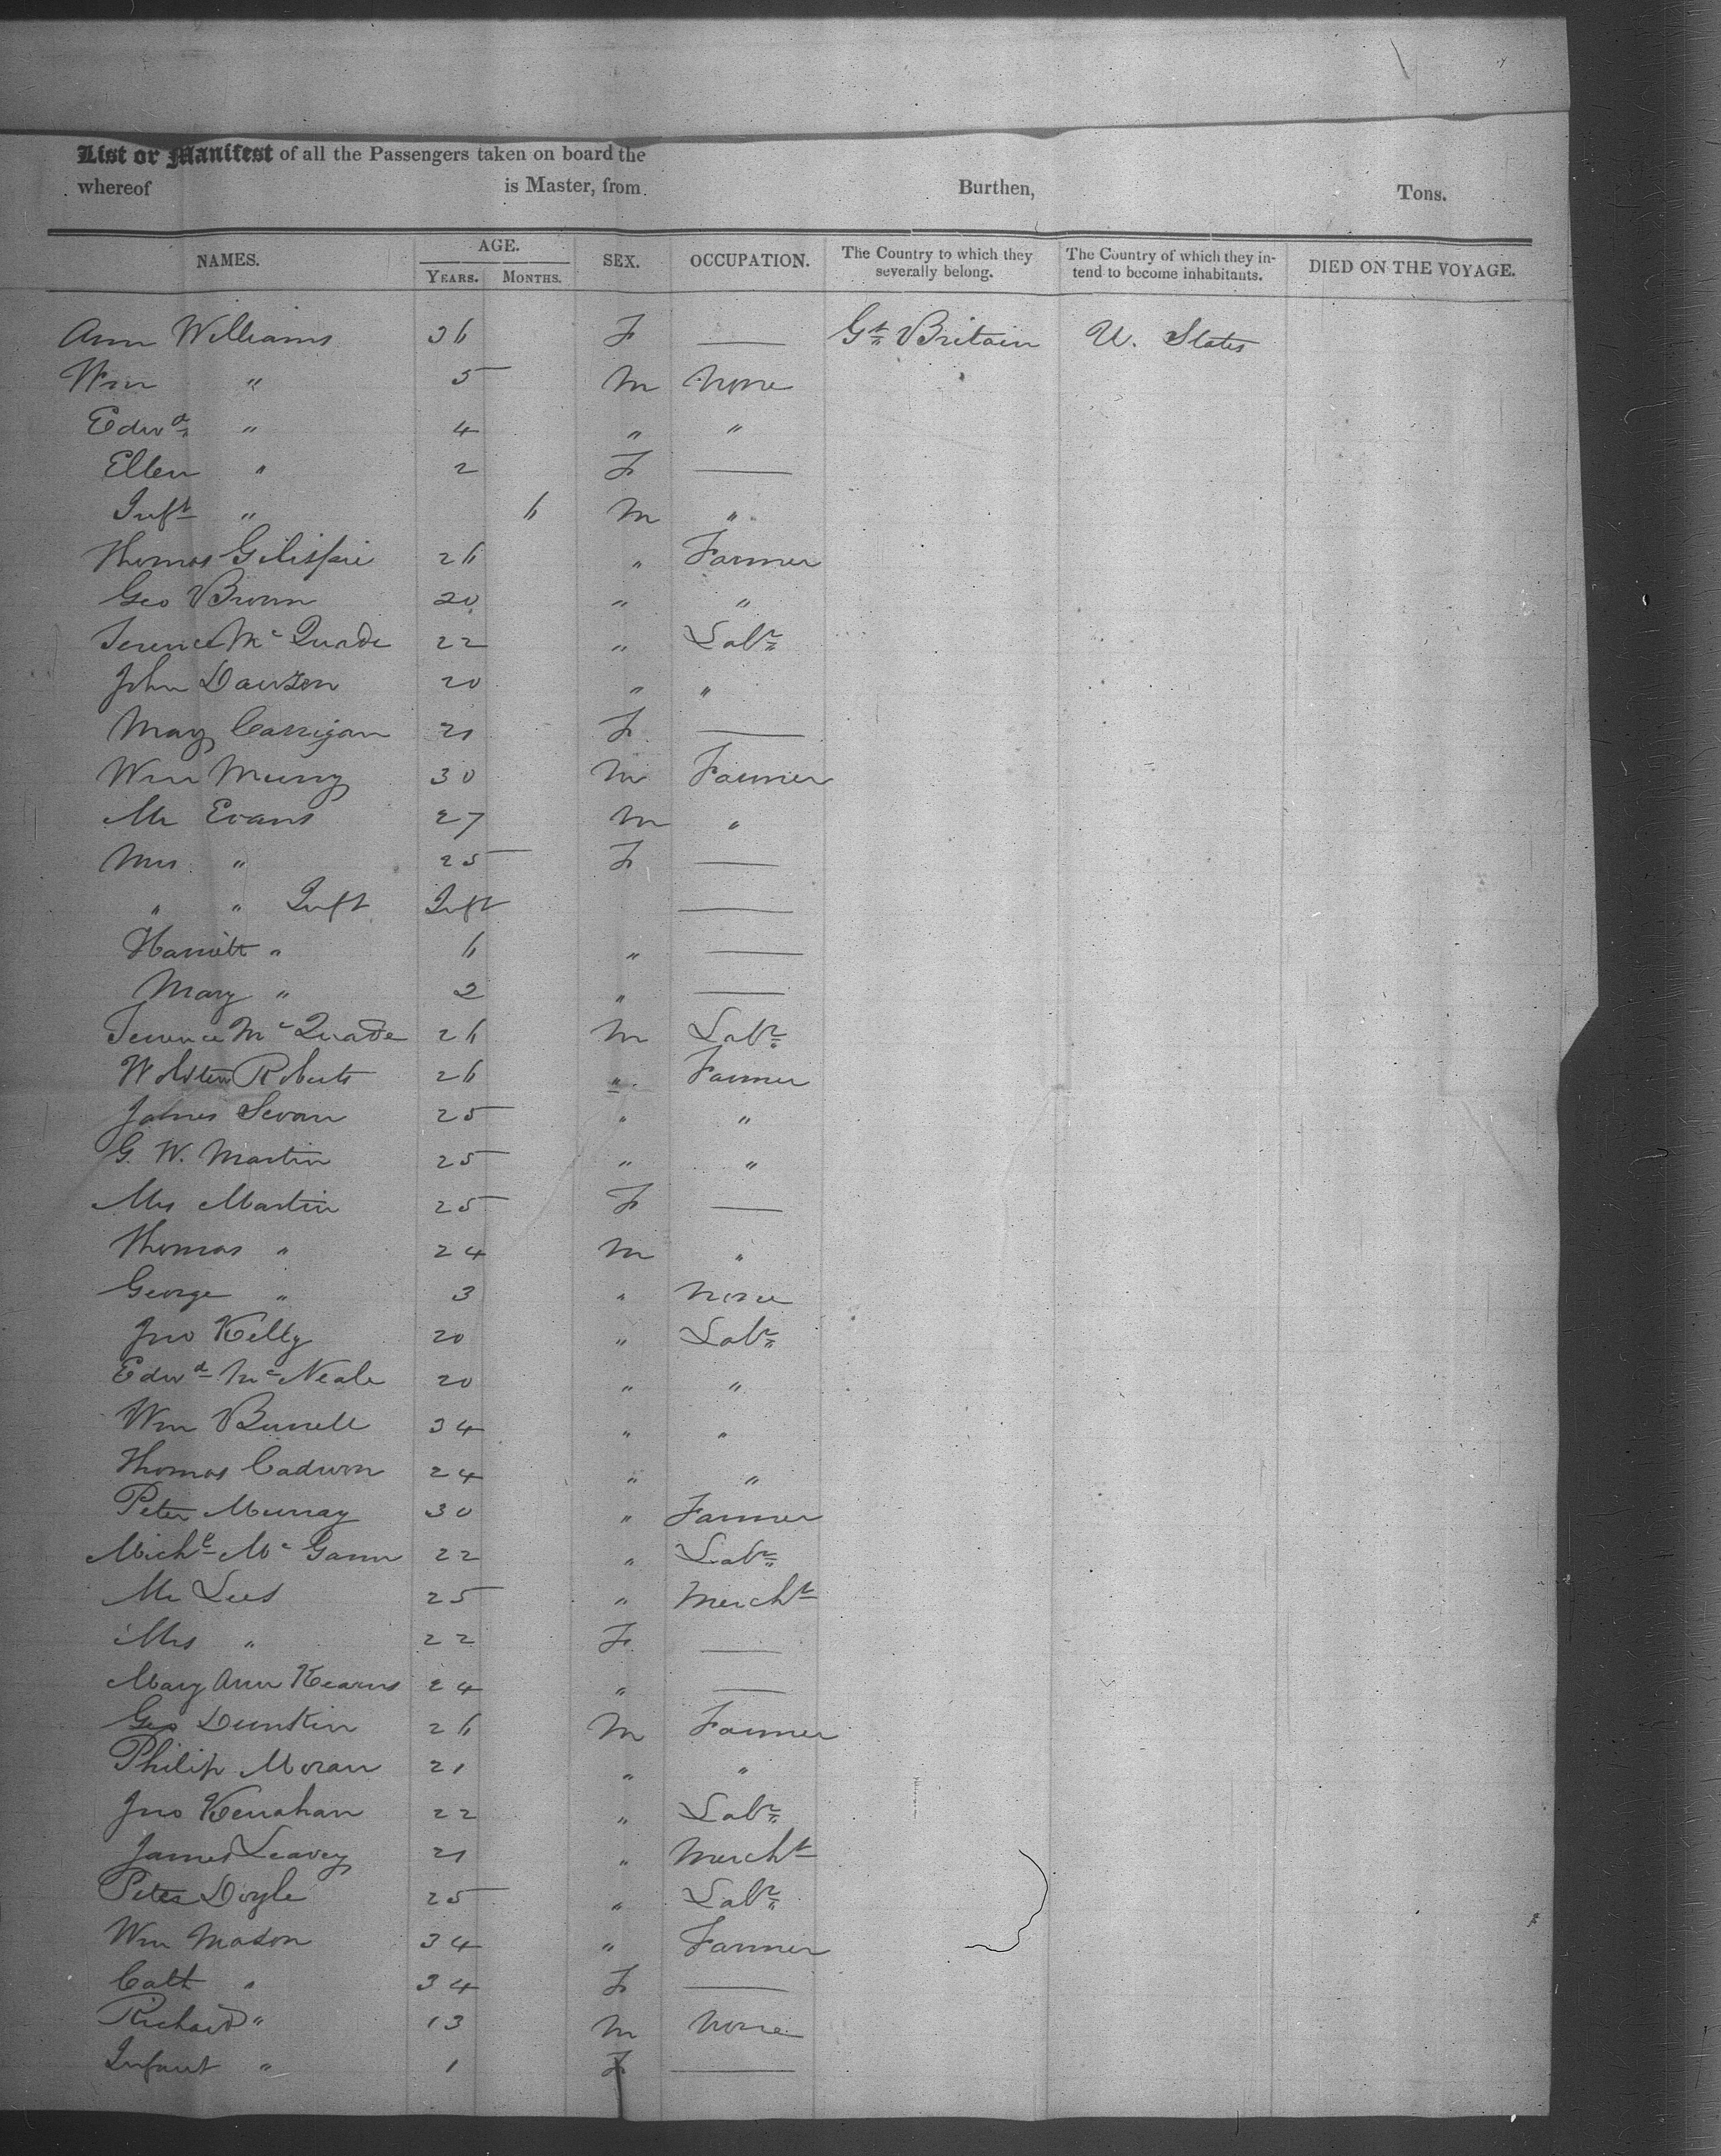 List or Manifest of all the Passengers taken on board the
whereof is Master, from Burthen, Tons.
NAMES. AGE. YEARS. MONTHS. SEX. OCCUPATION. The Country to which they severally belong. The Country of which they intend to become inhabitants. DIED ON THE VOYAGE.
Ann Williams 36 F — Gt Britain U. States
Wm " 5 M None
Edwd " 4 " "
Ellen " 2 F —
Inft " 6 M "
Thomas Gilispie 26 " Farmer
Geo Brown 20 " "
Terence McQuade 22 " Labr
John Dawson 20 " "
Mary Carrigan 21 F —
Wm Murry 30 M Farmer
Mr Evans 27 M "
Mrs " 25 F —
" " Inft Inft —
Harriett " 6 " —
Mary " 2 " —
Terence McQuade 26 M Labr
Roberts 26 " Farmer
James Swan 25 " "
G. W. Martin 25 " "
Mrs Martin 25 F —
Thomas " 24 M "
George " 3 " None
Jno Kelly 20 " Labr
Edwd McNeale 20 " "
Wm Burrell 34 " "
Thomas 24 " "
Peter Murray 30 " Farmer
Michl McGann 22 " Labr
Mr Lees 25 " Mercht
Mrs " 22 F —
Mary Ann Kearns 24 " —
Geo Dunkin 26 M Farmer
Philip Moran 21 " "
Jno Kenahan 22 " Labr
James Leavey 21 " Mercht
Peter Doyle 25 " Labr
Wm Mason 34 " Farmer
Cath " 34 F —
Richard " 13 M None
Infant " 1 F —